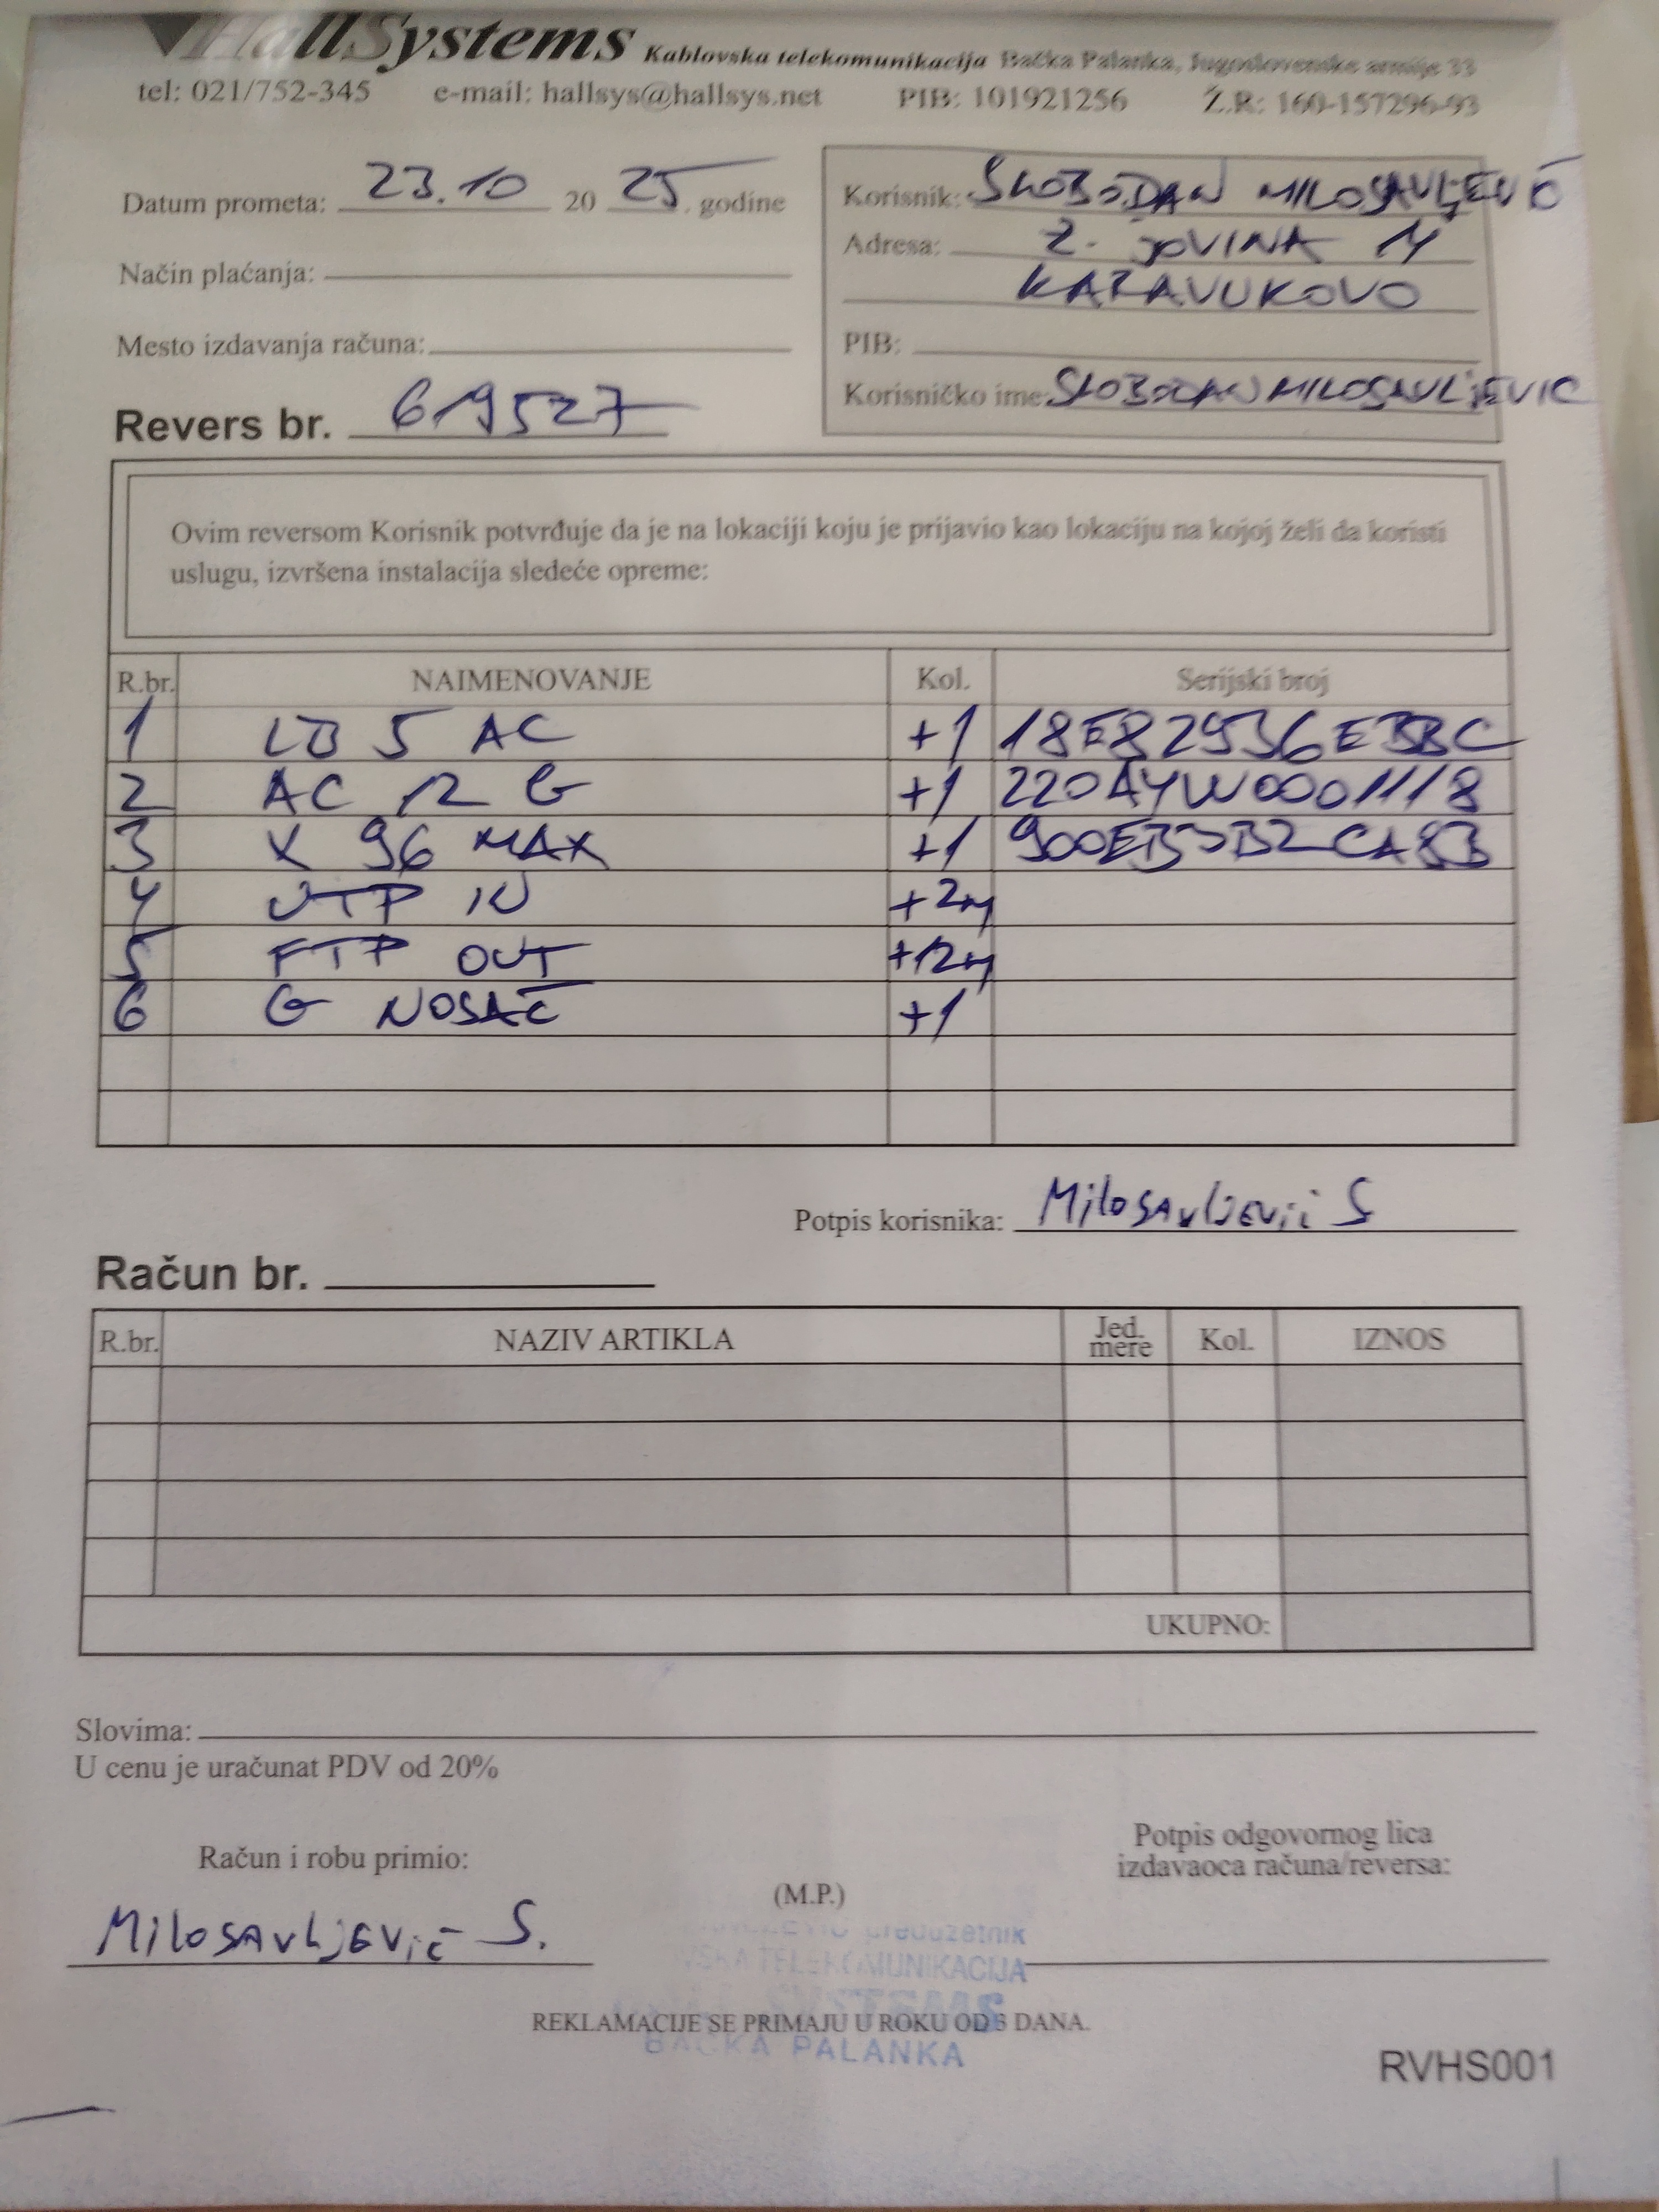 HallSystems Kablovska telekomunikacija Bačka Palanka, Jugoslovenske armije 33
tel: 021/752-345 e-mail: hallsys@hallsys.net PIB: 101921256 Ž.R: 160-157296-93
Datum prometa: 23.10 20 25. godine
Način plaćanja:
Mesto izdavanja računa:
Revers br. 619527
Korisnik: SLOBODAN MILOSAVLJEVIĆ
Adresa: Ž. JOVINA 14
KARAVUKOVO
PIB:
Korisničko ime: SLOBODANMILOSAVLJEVIC
Ovim reversom Korisnik potvrđuje da je na lokaciji koju je prijavio kao lokaciju na kojoj želi da koristi
uslugu, izvršena instalacija sledeće opreme:
R.br. NAIMENOVANJE Kol. Serijski broj
1 LB 5 AC +1 18E82936EBBC
2 AC 12 G +1 220AYW0001118
3 X 96 MAX +1 900EB3B2CA8B
4 UTP IN +2m
5 FTP OUT +12m
6 G NOSAČ +1
Potpis korisnika: Milosavljević S
Račun br.
R.br. NAZIV ARTIKLA Jed. mere Kol. IZNOS
UKUPNO:
Slovima:
U cenu je uračunat PDV od 20%
Račun i robu primio:
Milosavljević S.
(M.P.)
Potpis odgovornog lica
izdavaoca računa/reversa:
preduzetnik
TELEKOMUNIKACIJA
SYSTEMS
REKLAMACIJE SE PRIMAJU U ROKU OD 3 DANA.
BAČKA PALANKA
RVHS001